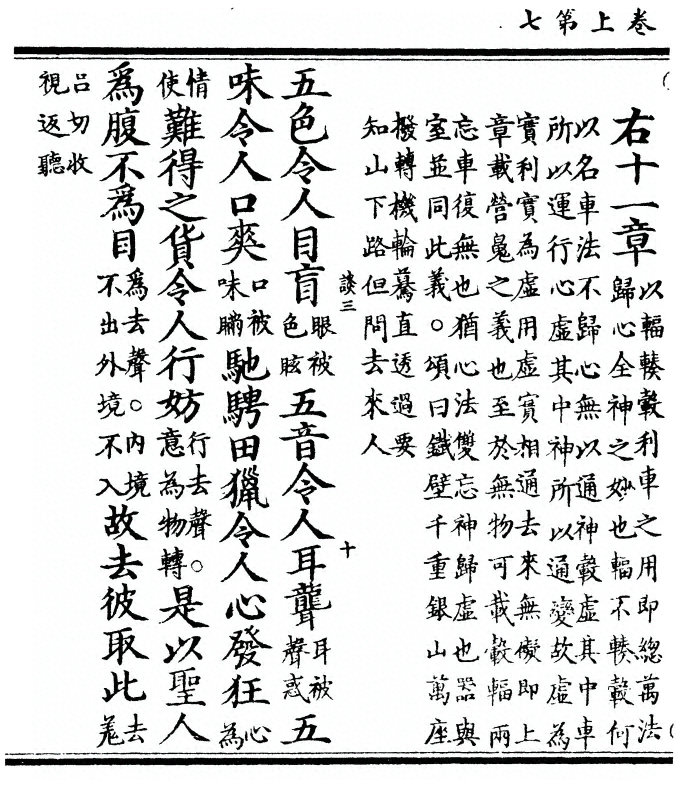 卷上第七
右十一章
以輻輳轂利車之用即總萬法
歸心全神之妙也輻不輳轂何
以名車法不歸心無以通神轂虛其中車
所以運行心虛其中神所以通變故虛為
實利實為虛用虛實相通去來無礙即上
章載營魄之義也至於無物可載轂輻兩
忘車復無也猶心法雙忘神歸虛也器與
室並同此義○頌曰鐵壁千重銀山萬座
撥轉機輪驀直透過要
知山下路但問去來人
談三
十
五色令人目盲眼被色眩五音令人耳聾耳被聲惑五
味令人口爽口被味瞞馳騁田獵令人心發狂心為
情使難得之貨令人行妨行去聲○意為物轉是以聖人
爲腹不爲目爲去聲○內境不出外境不入故去彼取此去羗
呂切收
視返聽